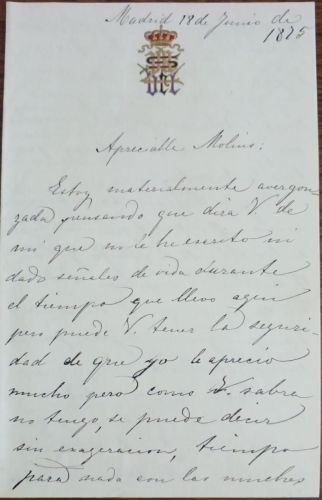 Madrid 18 de Junio de
1875
Apreciable Molins:
Estoy materialmente avergon-
zada pensando que dira V. de
mi que no le he escrito ni
dado señales de vida durante
el tiempo que llevo aqui
pero puede V. tener la seguri-
dad de que yo le aprecio
mucho pero como V. sabra
no tengo, se puede decir
sin exageracion, tiempo
para nada con las muchas